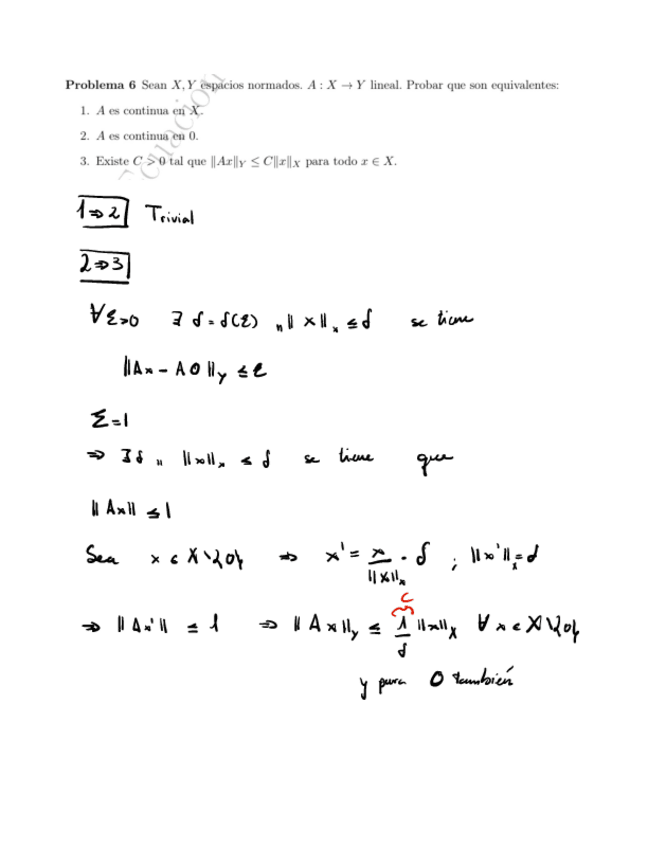 Problema 6 Sean X, Y espacios normados. A : X → Y lineal. Probar que son equivalentes:
1. A es continua en X.
2. A es continua en 0.
3. Existe C > 0 tal que ‖Ax‖_Y ≤ C‖x‖_X para todo x ∈ X.
1⇒2 Trivial
2⇒3
∀ε>0 ∃ δ=δ(ε) " ‖x‖_x ≤ δ se tiene
‖Ax - A0‖_Y ≤ ε
Σ=1
⇒ ∃δ " ‖x‖_x ≤ δ se tiene que
‖Ax‖ ≤ 1
Sea x ∈ X\{0} ⇒ x' = x/‖x‖_x · δ ; ‖x'‖_x = δ
C
⇒ ‖Ax'‖ ≤ 1 ⇒ ‖Ax‖_Y ≤ 1/δ ‖x‖_X ∀ x ∈ X\{0}
y para 0 también